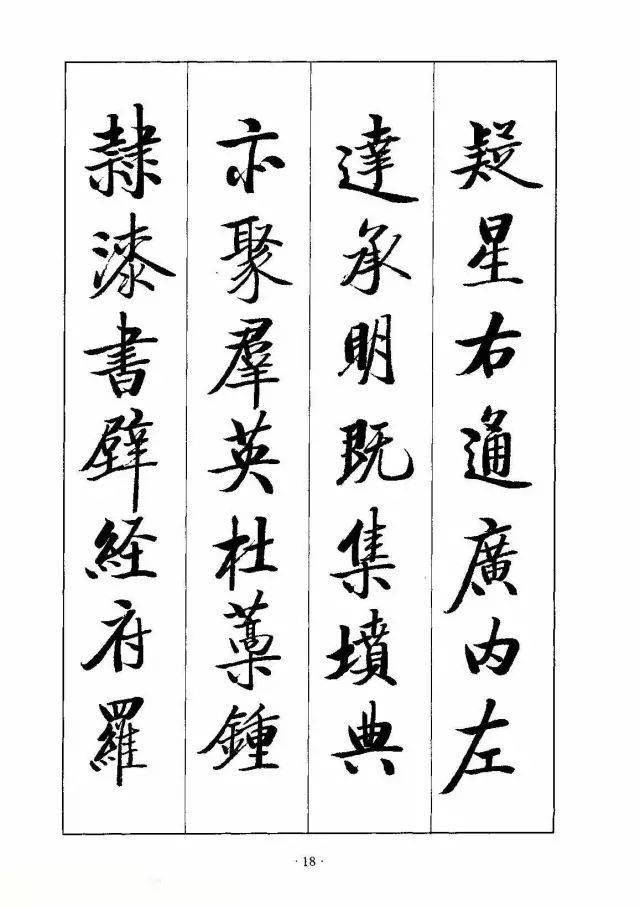 疑星右通廣内左
達承明既集墳典
亦聚羣英杜藁鍾
隸漆書壁経府羅
·18·